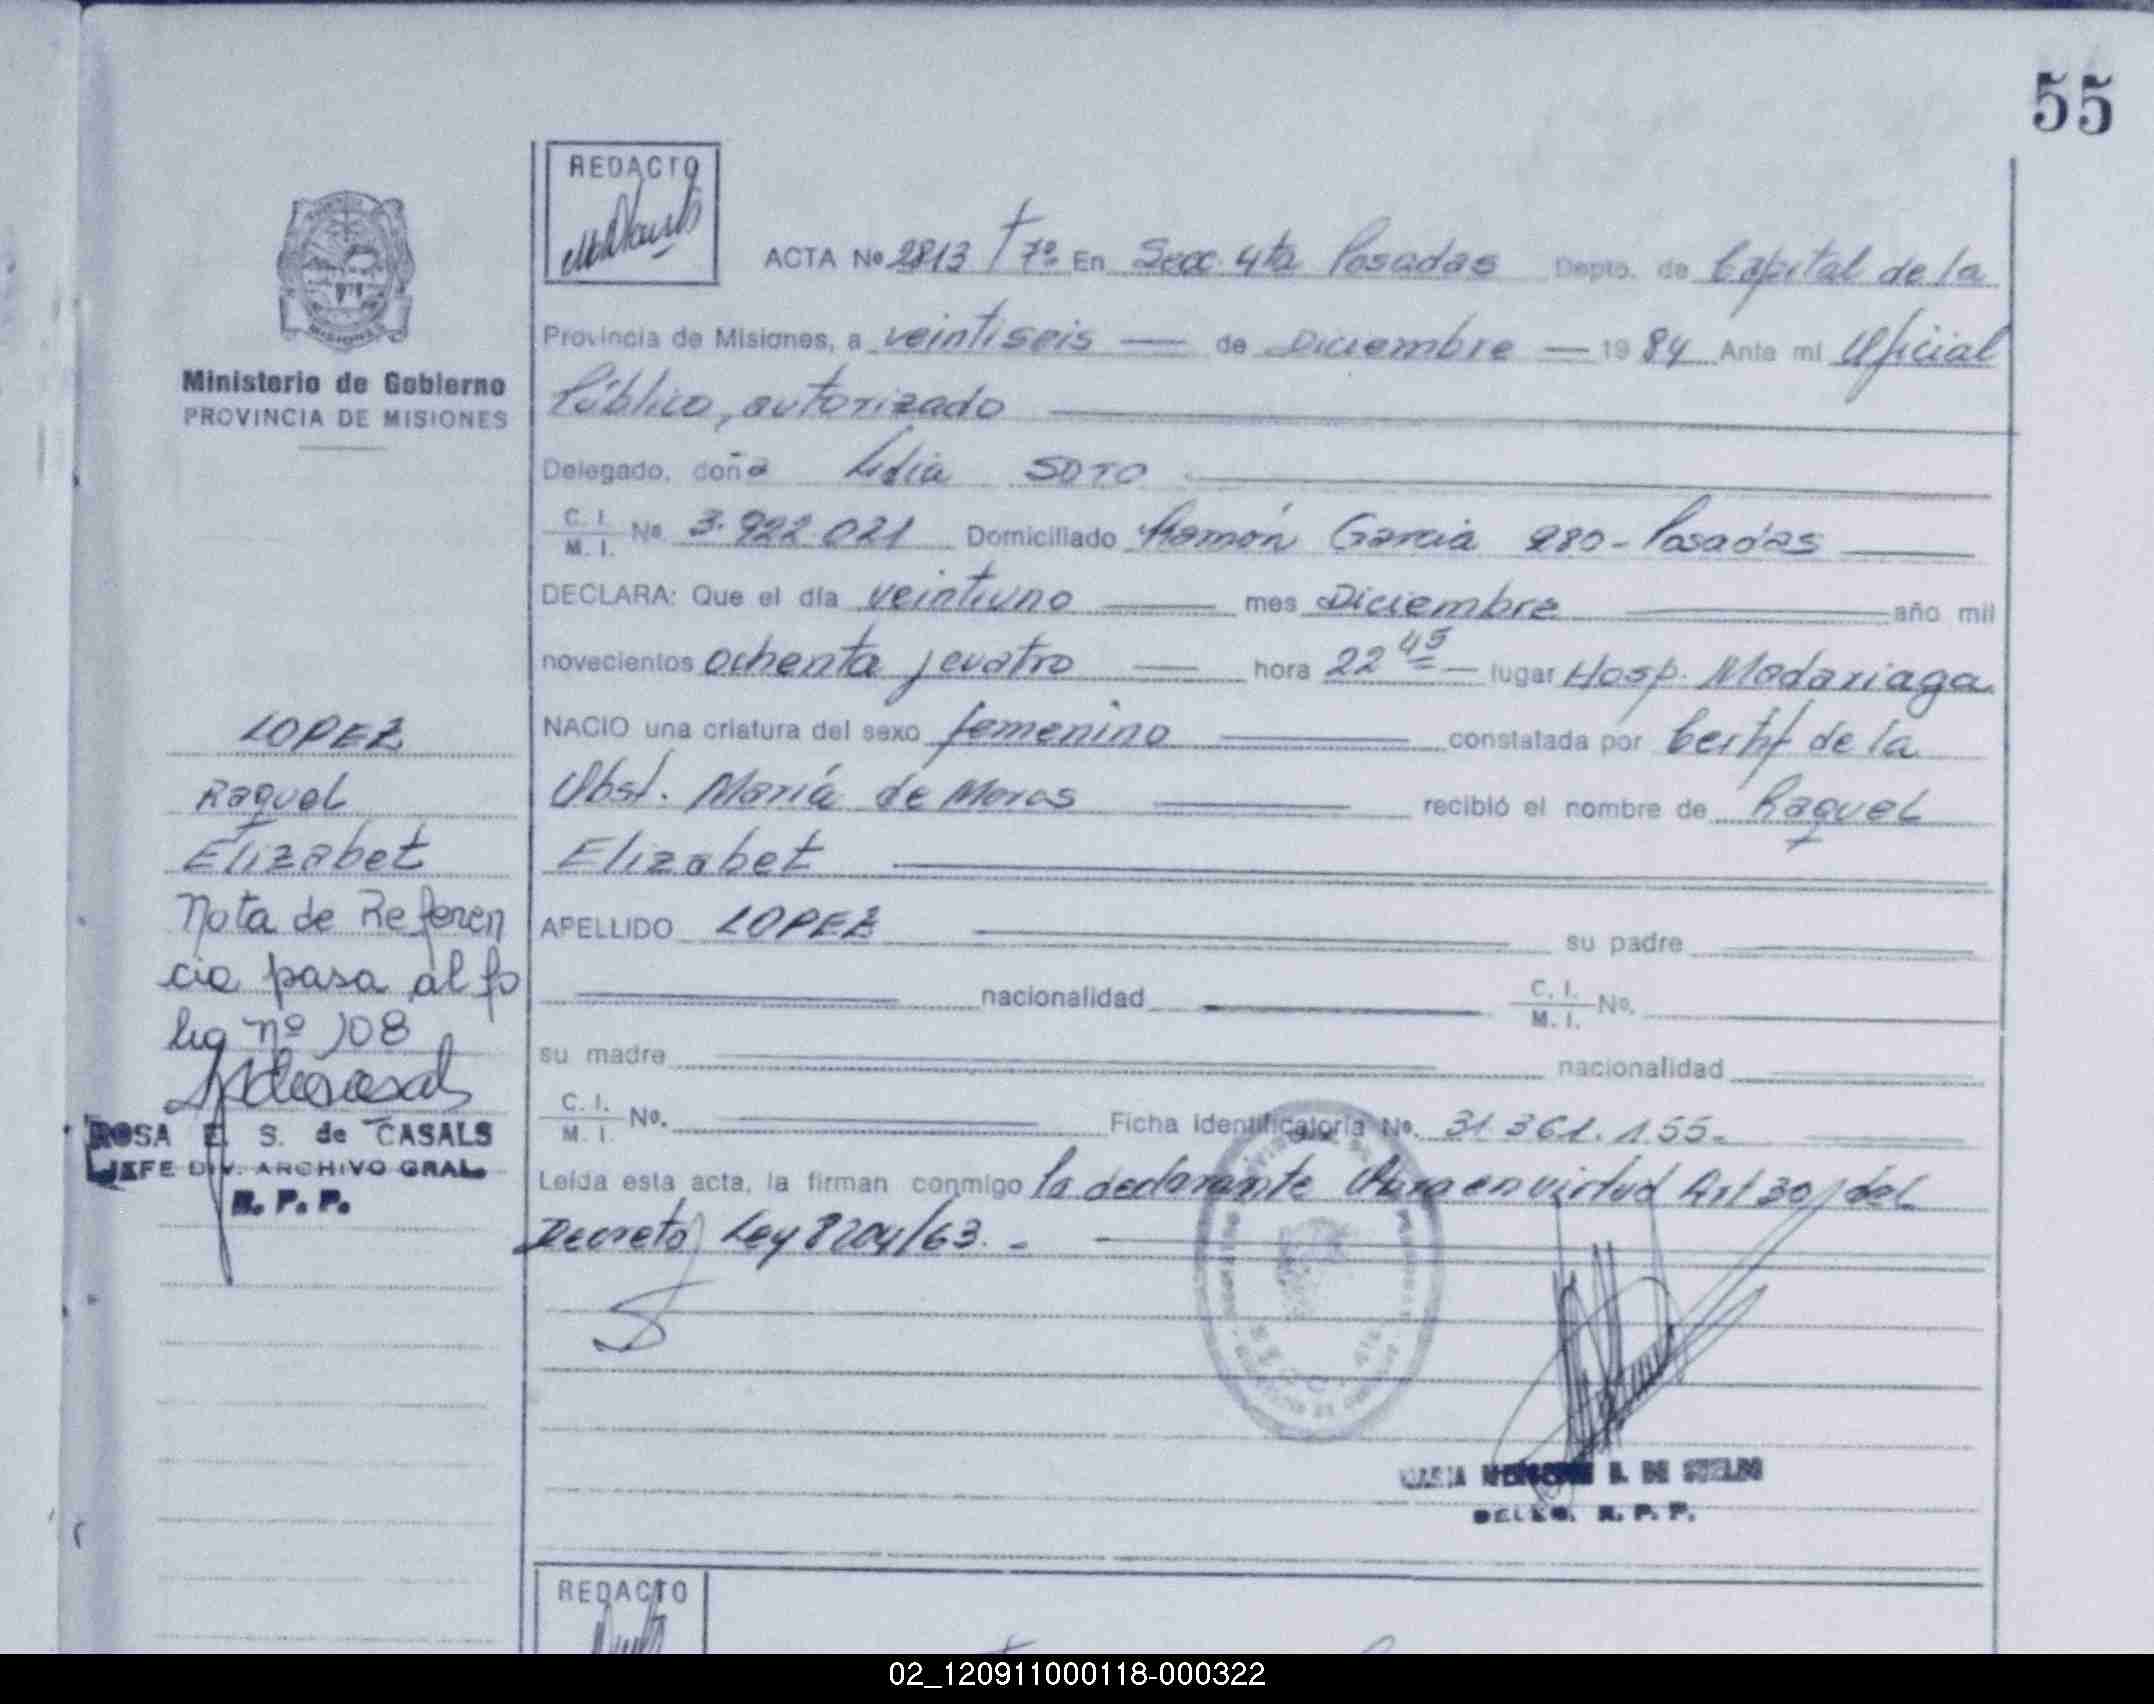 55
REDACTO
ACTA Nº 2813 Tº 7º En Secc. 4ta Posadas Depto. de Capital de la
Provincia de Misiones, a veintiseis — de Diciembre — 19 84 Ante mi Oficial
Público, autorizado
Delegado, doña Lidia SOTO
C. I.
M. I. No. 3.922.021 Domiciliado Ramón Garcia 280 - Posadas
DECLARA: Que el día veintiuno mes Diciembre año mil
novecientos ochenta y cuatro hora 22 45 lugar Hosp. Madariaga
NACIO una criatura del sexo femenino constatada por Certif de la
Obst. María de Moras recibió el nombre de Raquel
Elizabet
APELLIDO LOPEZ su padre
nacionalidad C. I.
M. I. No.
su madre nacionalidad
C. I.
M. I. No. Ficha Identificatoria No. 31.361.155.-
Leída esta acta, la firman conmigo la declarante en virtud Art 30 del
Decreto Ley 8204/63. -
Ministerio de Gobierno
PROVINCIA DE MISIONES
LOPEZ
Raquel
Elizabet
Nota de Referen
cia pasa al fo
lio nº 108
ROSA E. S. de CASALS
JEFE DIV. ARCHIVO GRAL.
R. P. P.
DELEG. R. P. P.
REDACTO
02_120911000118-000322